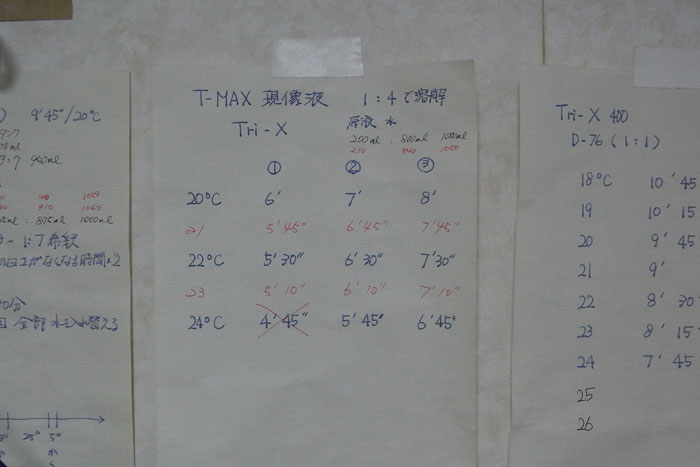 9'45"/20°C
940ml
1:7 希釈
全部水を入れ替える
25" 5"
T-MAX 現像液 1:4で溶解
Tri-X 原液 水
200ml : 800ml 1000ml
210 840 1050
① ② ③
20°C 6' 7' 8'
21 5'45" 6'45" 7'45"
22°C 5'30" 6'30" 7'30"
23 5'10" 6'10" 7'10"
24°C 4'45" 5'45" 6'45"
Tri-X 400
D-76 (1:1)
18°C 10'45
19 10'15
20 9'45
21 9'
22 8'30
23 8'15
24 7'45
25
26